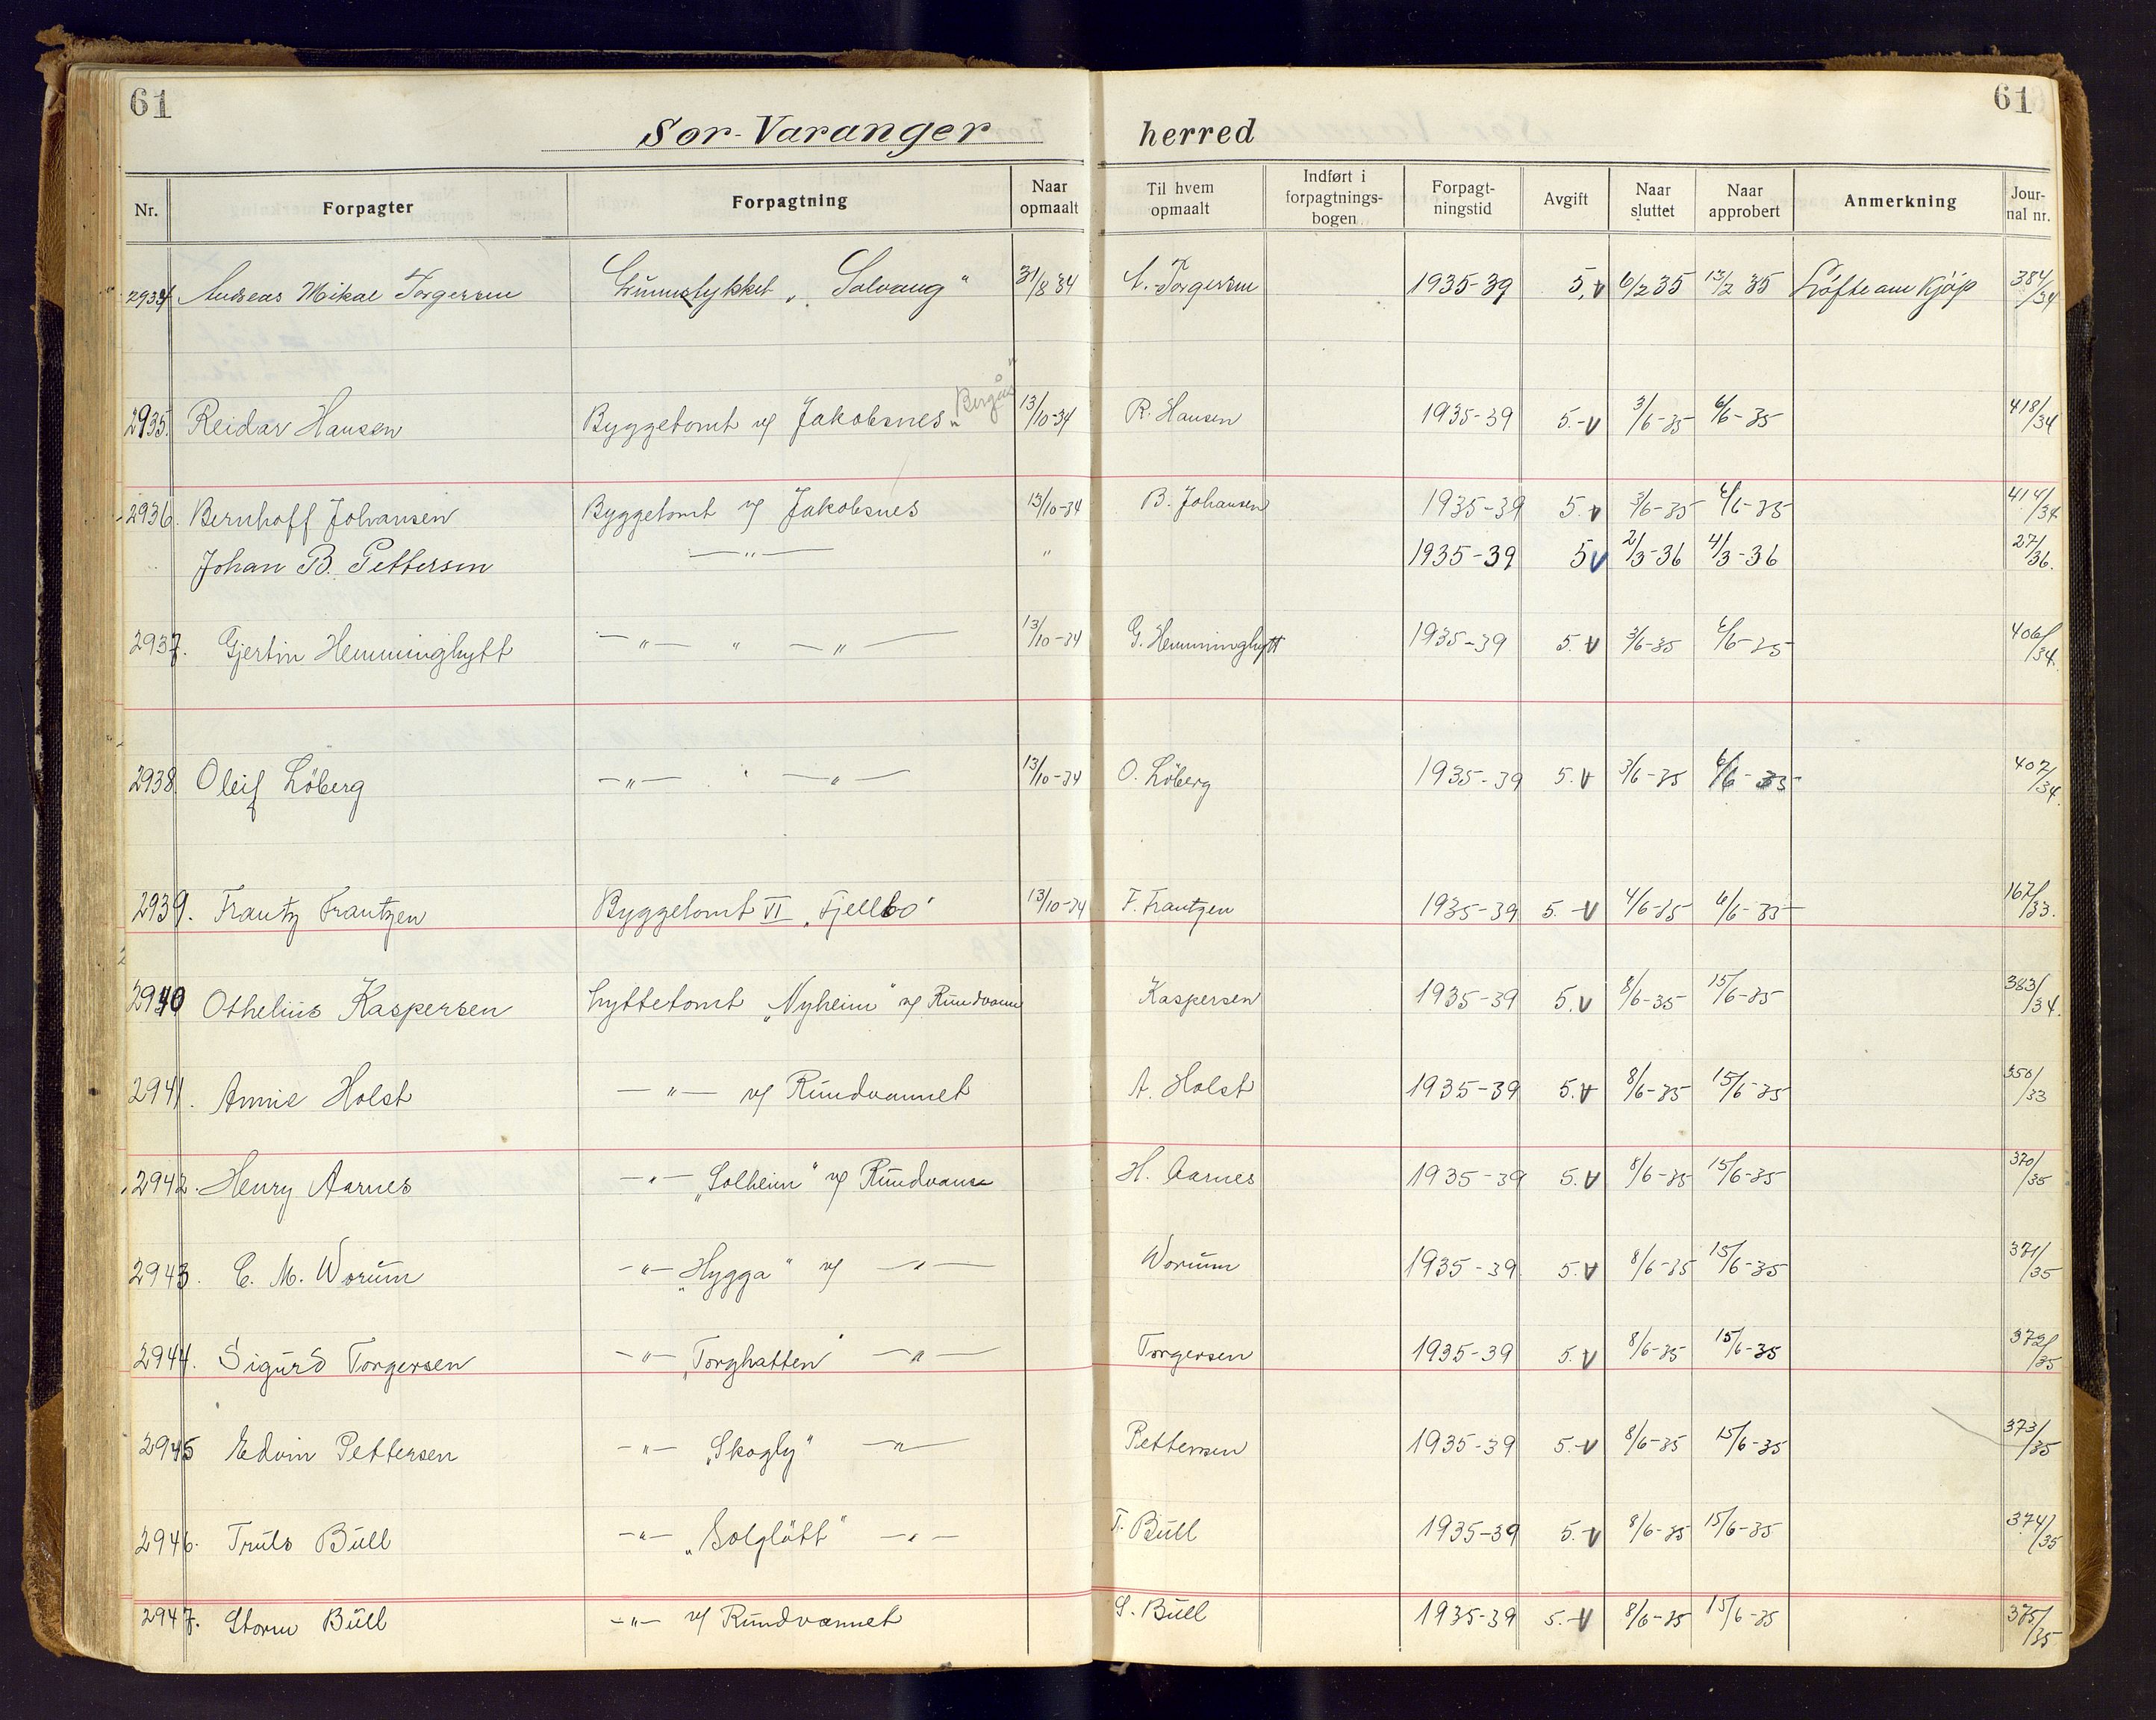 61 61
Sør-Varanger herred
Nr. Forpagter Forpagtning Naar opmaalt Til hvem opmaalt Indført i forpagtnings-bogen Forpagt-ningstid Avgift Naar sluttet Naar approbert Anmerkning Jour-nal nr.
2934 Andreas Mikal Torgersen Grunnstykket „Solvang" 31/8 34 A. Torgersen 1935-39 5,- 6/2 35 13/2 35 Løfte om kjøp 384/34
2935. Reidar Hansen Byggetomt v/ Jakobsnes „Bergås" 13/10-34 R. Hansen 1935-39 5.- 3/6-35 6/6-35 418/34
2936. Bernhoff Johansen Byggetomt v/ Jakobsnes 13/10-34 B. Johansen 1935-39 5. 3/6-35 6/6-35 414/34
Johan B. Pettersen —"— " 1935-39 5 2/3-36 4/3-36 27/36.
2937. Gjertin Hemminghytt —"— " —"— 13/10-34 G. Hemminghytt 1935-39 5. 3/6-35 6/6-35 406/34.
2938. Oleif Löberg —"— " —"— 13/10-34 O. Löberg 1935-39 5. 3/6-35 6/6-35 407/34.
2939. Frantz Frantzen Byggetomt VI „Fjellbo" 13/10-34 F. Frantzen 1935-39 5.- 4/6-35 6/6-35 167/33.
2940 Othelius Kaspersen Hyttetomt „Nyheim" v/ Rundvann Kaspersen 1935-39 5. 8/6-35 15/6-35 383/34.
2941. Annie Holst —"— v/ Rundvannet A. Holst 1935-39 5. 8/6-35 15/6-35 350/33
2942. Henry Aarnes —"— „Solheim" v/ Rundvann H. Aarnes 1935-39 5. 8/6-35 15/6-35 370/35
2943. C. M. Worum —"— „Hygga" v/ —"— Worum 1935-39 5. 8/6-35 15/6-35 371/35
2944. Sigurd Torgersen —"— „Torghatten" —"— Torgersen 1935-39 5. 8/6-35 15/6-35 372/35
2945 Edvin Pettersen —"— „Skogly" —"— Pettersen 1935-39 5.- 8/6-35 15/6-35 373/35
2946. Truls Bull —"— „Solglött" —"— T. Bull 1935-39 5.- 8/6-35 15/6-35 374/35
2947. Storm Bull —"— v/ Rundvannet S. Bull 1935-39 5.- 8/6-35 15/6-35 375/35